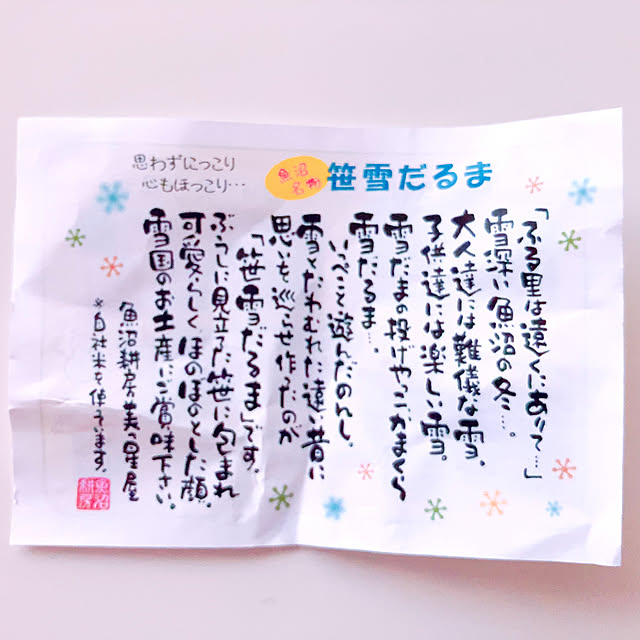 思わずにっこり
心もほっこり…
魚沼
名物
笹雪だるま
「ふる里は遠くにありて…」
雪深い魚沼の冬…。
大人達には難儀な雪、
子供達には楽しい雪。
雪だまの投げやっこ、かまくら
雪だるま…、
いっぺこと遊んだのんし。
雪とたわむれた遠い昔に
思いを巡らせ作ったのが
「笹雪だるま」です。
ぶうしに見立てた笹に包まれ
可愛らしくほのぼのとした顔。
雪国のお土産にご賞味下さい。
魚沼耕房美っ星屋
※自社米を使ってます。
魚沼
耕房